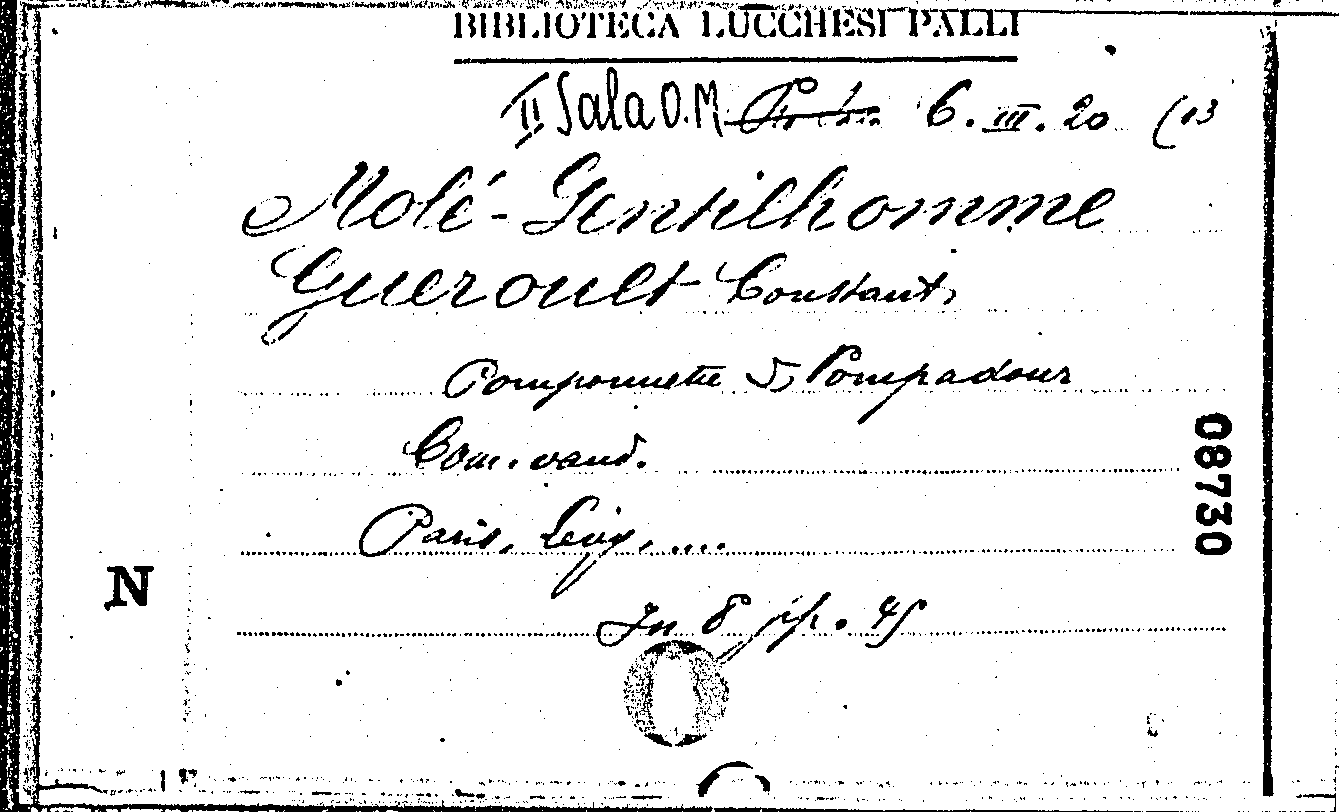 BIBLIOTECA LUCCHESI PALLI
II Sala O.M. 6. III. 20 (13
Molé-Gentilhomme
Gueroult Constant,
Pomponnette & Pompadour
Com. vaud.
Paris, Lévy, ....
In 8° pp. 45
08730
N